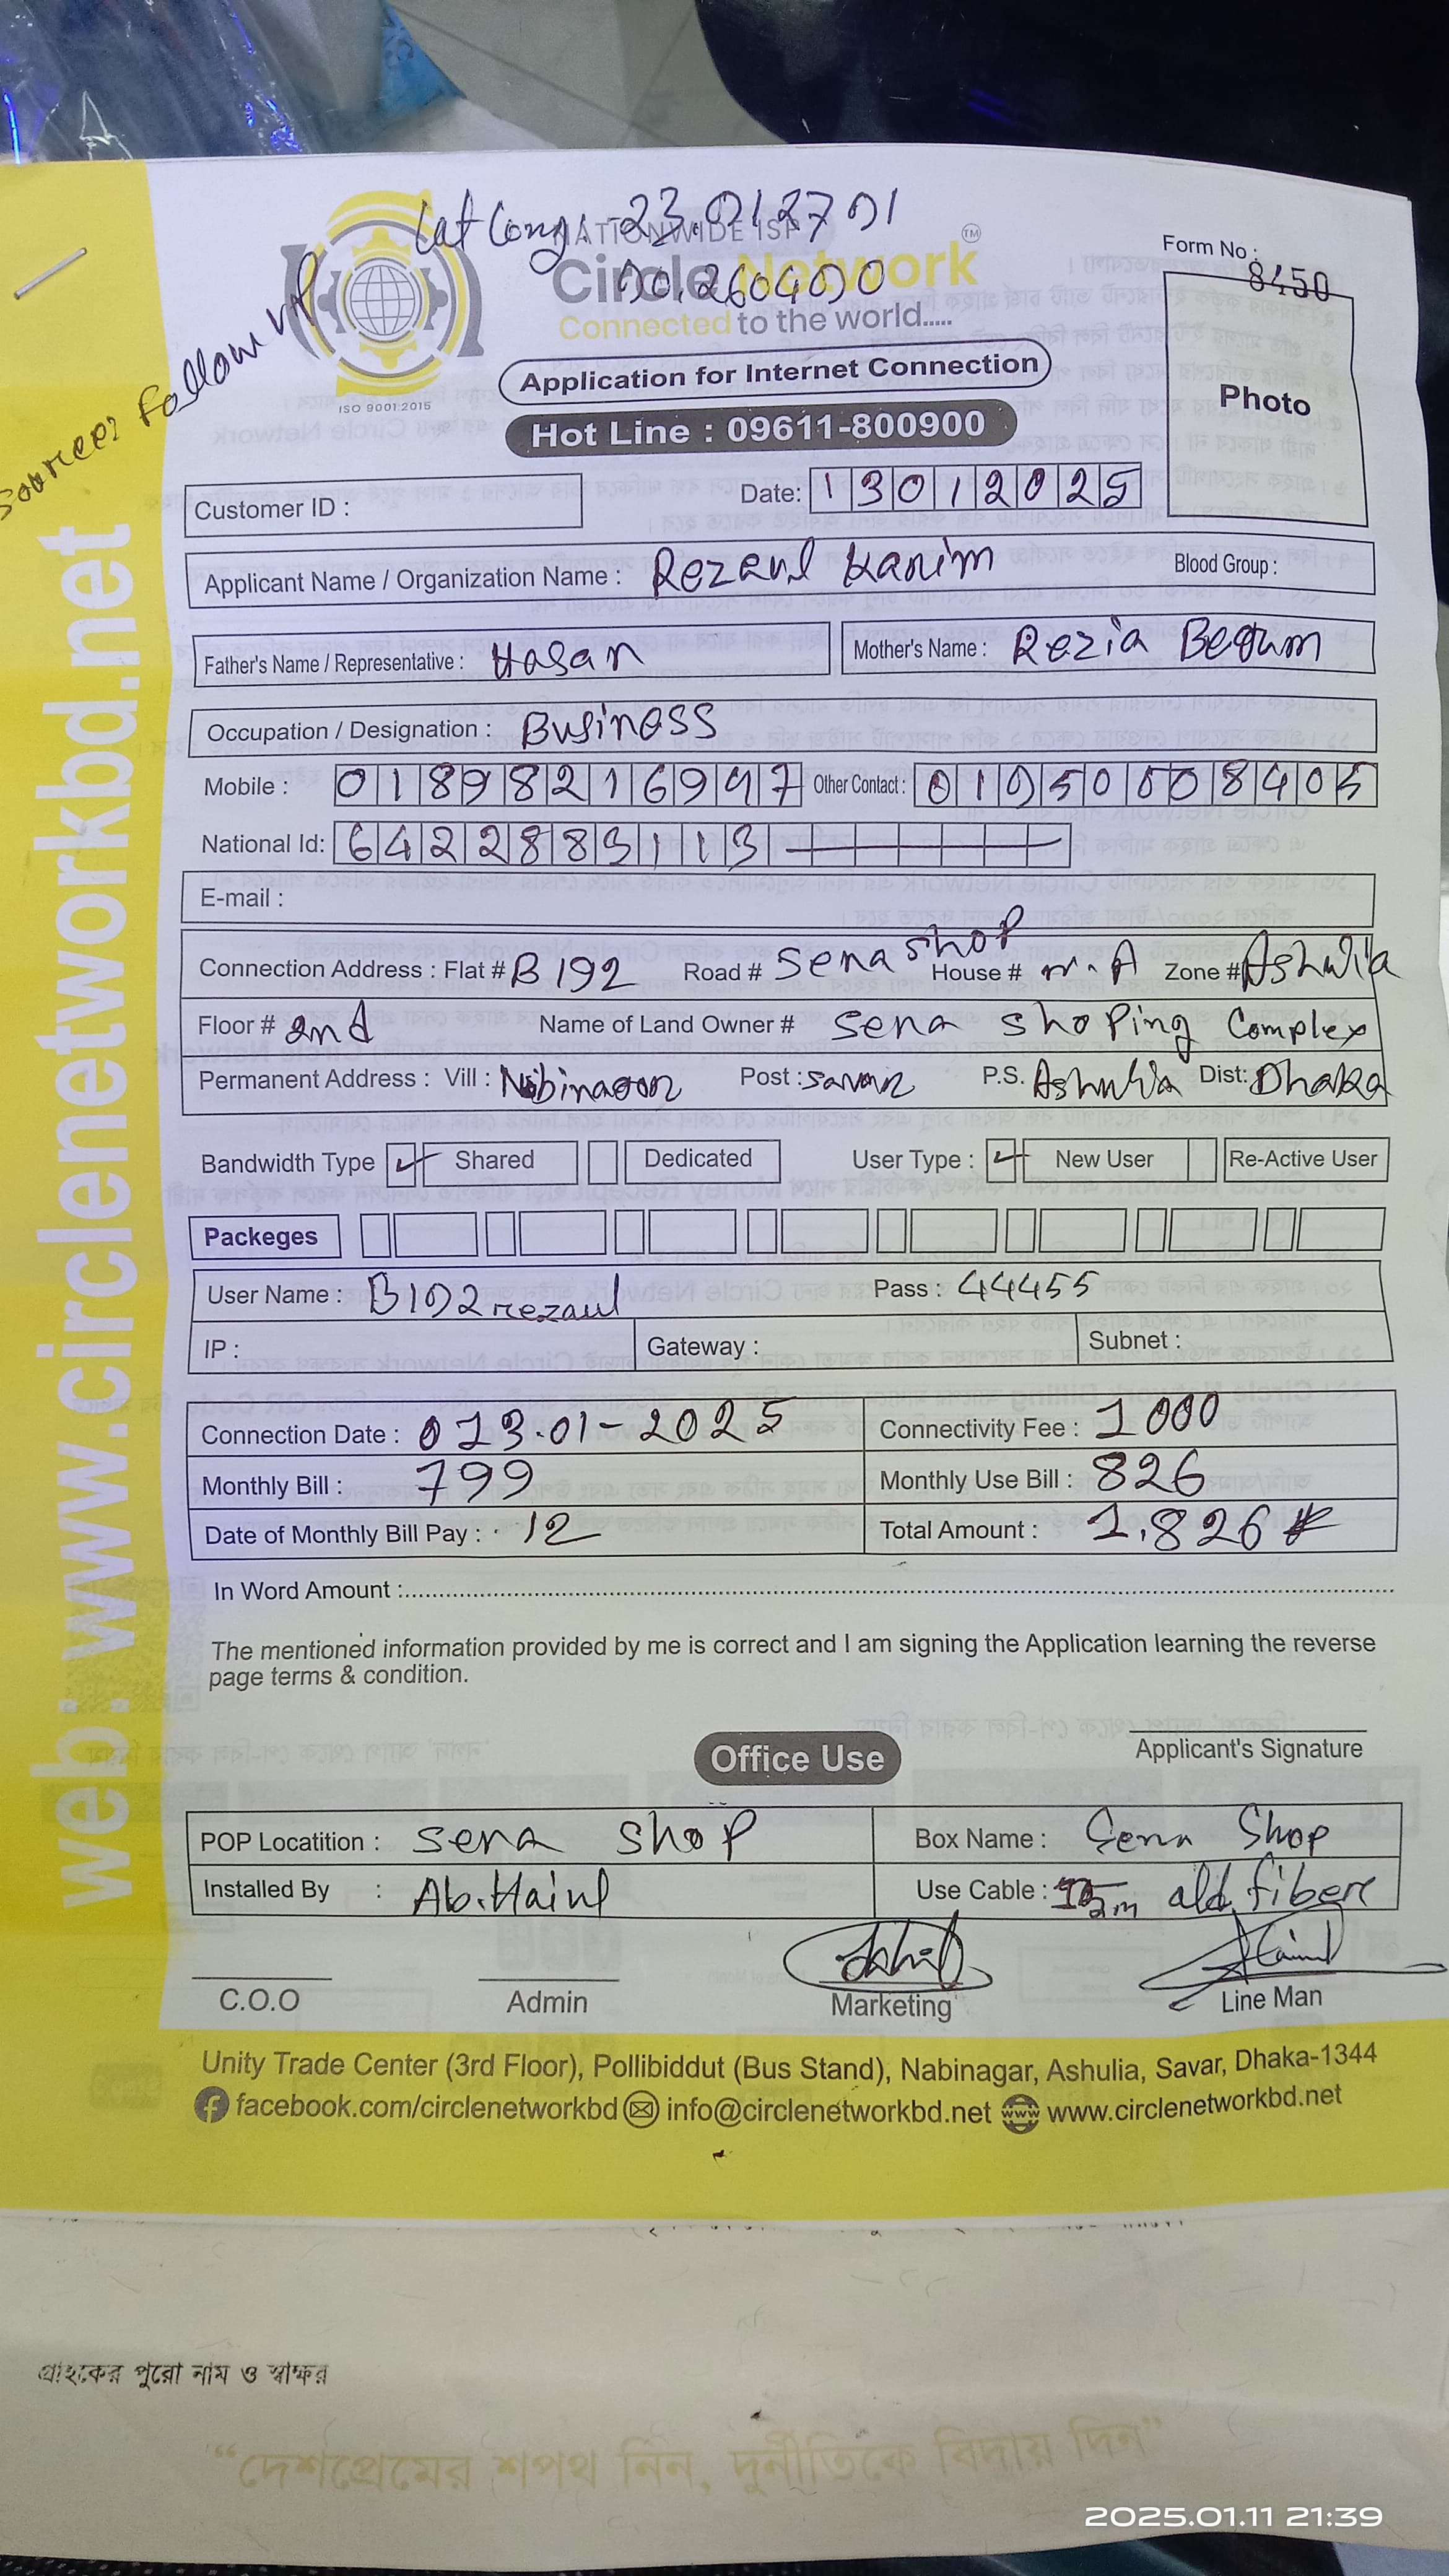 Lat Long: 23.912791
NATIONWIDE ISP
Circle Network TM
90.260400
Connected to the world.....
Follow up
ISO 9001:2015
Form No : 8450
Photo
Application for Internet Connection
Hot Line : 09611-800900
Customer ID :
Date: 13012025
Applicant Name / Organization Name : Rezaul Karim Blood Group :
Father's Name / Representative : Hasan Mother's Name : Rezia Begum
Occupation / Designation : Business
Mobile : 01898216997 Other Contact : 01950008405
National Id: 6422883113
E-mail :
Connection Address : Flat # B192 Road # Sena Shop House # N.A Zone # Ashulia
Floor # 2nd Name of Land Owner # Sena Shoping Complex
Permanent Address : Vill : Nobinagor Post : Savar P.S. Ashulia Dist: Dhaka
Bandwidth Type Shared Dedicated User Type : New User Re-Active User
Packeges
User Name : B192rezaul Pass : 44455
IP : Gateway : Subnet :
Connection Date : 013-01-2025 Connectivity Fee : 1000
Monthly Bill : 799 Monthly Use Bill : 826
Date of Monthly Bill Pay : 12 Total Amount : 1,826
In Word Amount :
The mentioned information provided by me is correct and I am signing the Application learning the reverse
page terms & condition.
Applicant's Signature
Office Use
POP Locatition : Sena Shop Box Name : Sena Shop
Installed By : Ab.Hainl Use Cable : old fiber
C.O.O Admin Marketing Line Man
Unity Trade Center (3rd Floor), Pollibiddut (Bus Stand), Nabinagar, Ashulia, Savar, Dhaka-1344
facebook.com/circlenetworkbd info@circlenetworkbd.net www.circlenetworkbd.net
web: www.circlenetworkbd.net
গ্রাহকের পুরো নাম ও স্বাক্ষর
“দেশপ্রেমের শপথ নিন, দুর্নীতিকে বিদায় দিন”
2025.01.11 21:39